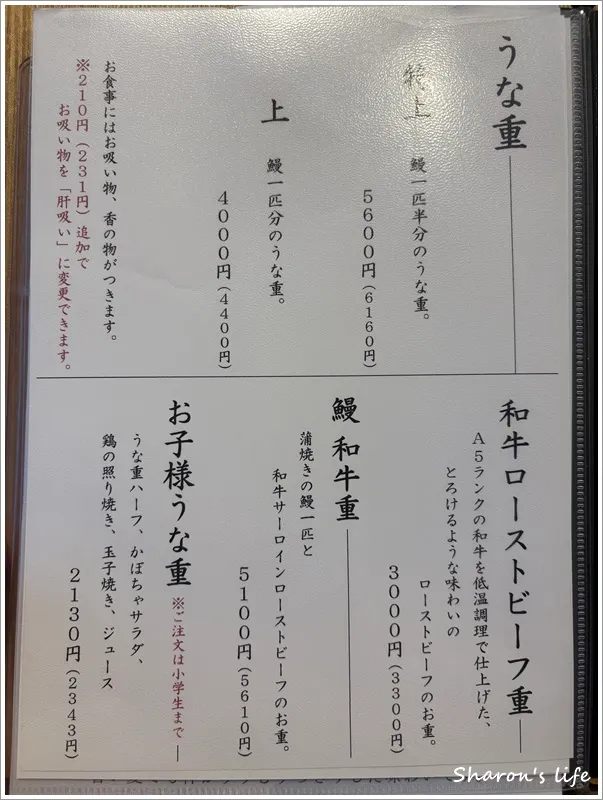 うな重
特上
鰻一匹半分のうな重。
5600円(6160円)
上
鰻一匹分のうな重。
4000円(4400円)
お食事にはお吸い物、香の物がつきます。
※210円(231円)追加で
お吸い物を「肝吸い」に変更できます。
和牛ローストビーフ重
A5ランクの和牛を低温調理で仕上げた、
とろけるような味わいの
ローストビーフのお重。
3000円(3300円)
鰻 和牛重
蒲焼きの鰻一匹と
和牛サーロインローストビーフのお重。
5100円(5610円)
お子様うな重
※ご注文は小学生まで
うな重ハーフ、かぼちゃサラダ、
鶏の照り焼き、玉子焼き、ジュース
2130円(2343円)
Sharon's life